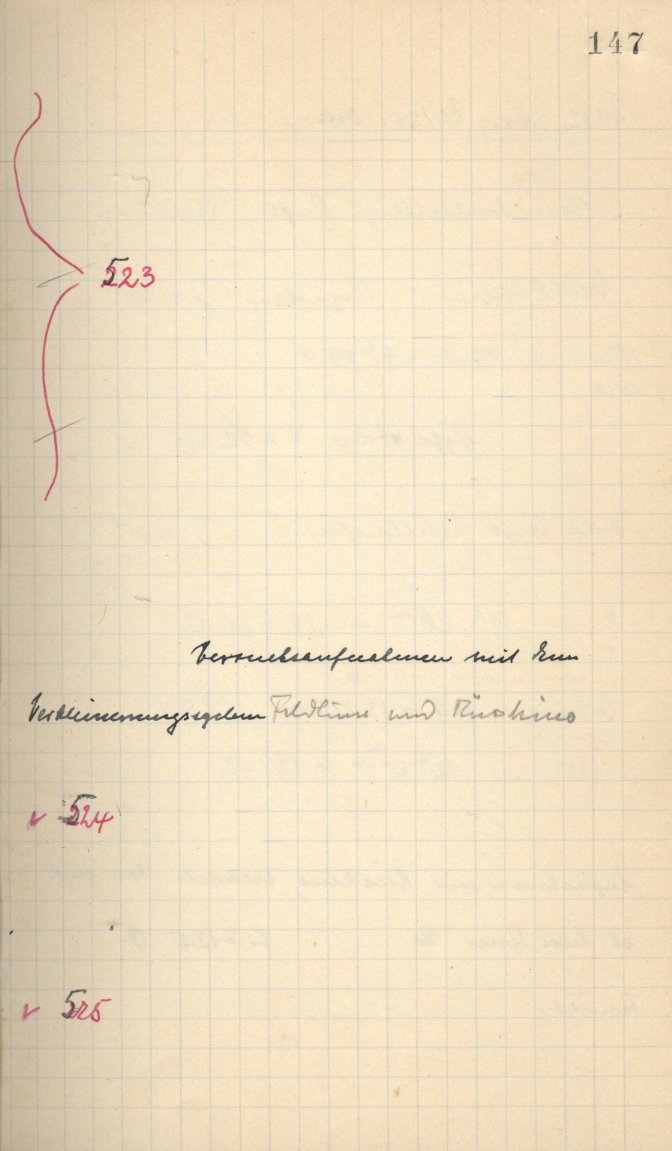 147
523
Versuchsaufnahmen mit dem
Verkleinerungssystem Feldlinse und Kinokino
524
525